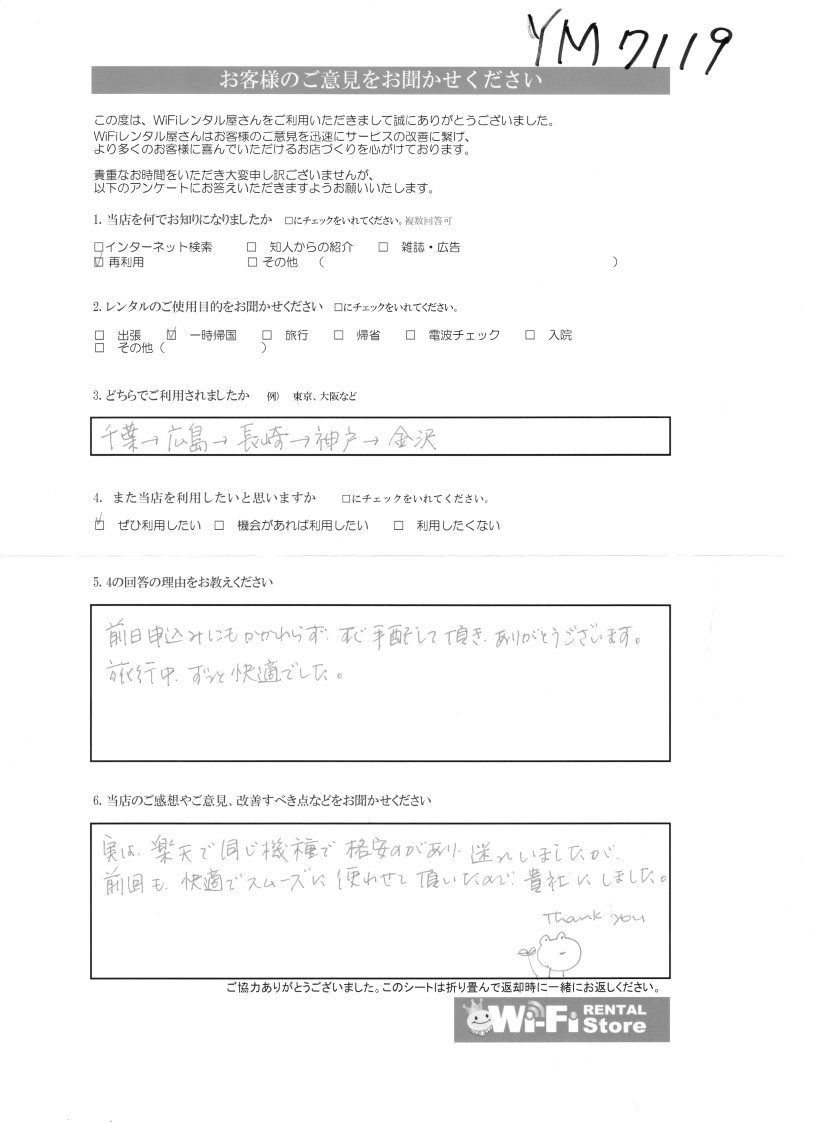 YM7119
お客様のご意見をお聞かせください
この度は、WiFiレンタル屋さんをご利用いただきまして誠にありがとうございました。
WiFiレンタル屋さんはお客様のご意見を迅速にサービスの改善に繋げ、
より多くのお客様に喜んでいただけるお店づくりを心がけております。
貴重なお時間をいただき大変申し訳ございませんが、
以下のアンケートにお答えいただきますようお願いいたします。
1. 当店を何でお知りになりましたか □にチェックをいれてください。複数回答可
□インターネット検索 □ 知人からの紹介 □ 雑誌・広告
☑ 再利用 □ その他 （ ）
2. レンタルのご使用目的をお聞かせください □にチェックをいれてください。
□ 出張 ☑ 一時帰国 □ 旅行 □ 帰省 □ 電波チェック □ 入院
□ その他（ ）
3. どちらでご利用されましたか 例） 東京、大阪など
千葉→広島→長崎→神戸→金沢
4. また当店を利用したいと思いますか □にチェックをいれてください。
☑ ぜひ利用したい □ 機会があれば利用したい □ 利用したくない
5. 4の回答の理由をお教えください
前日申込みにもかかわらず、すぐ手配して頂き、ありがとうございます。
旅行中、ずっと快適でした。
6. 当店のご感想やご意見、改善すべき点などをお聞かせください
実は、楽天で同じ機種で格安のがあり、迷いましたが、
前回も、快適でスムーズに使わせて頂いたので、貴社にしました。
Thank you
ご協力ありがとうございました。このシートは折り畳んで返却時に一緒にお返しください。
Wi-Fi RENTAL Store